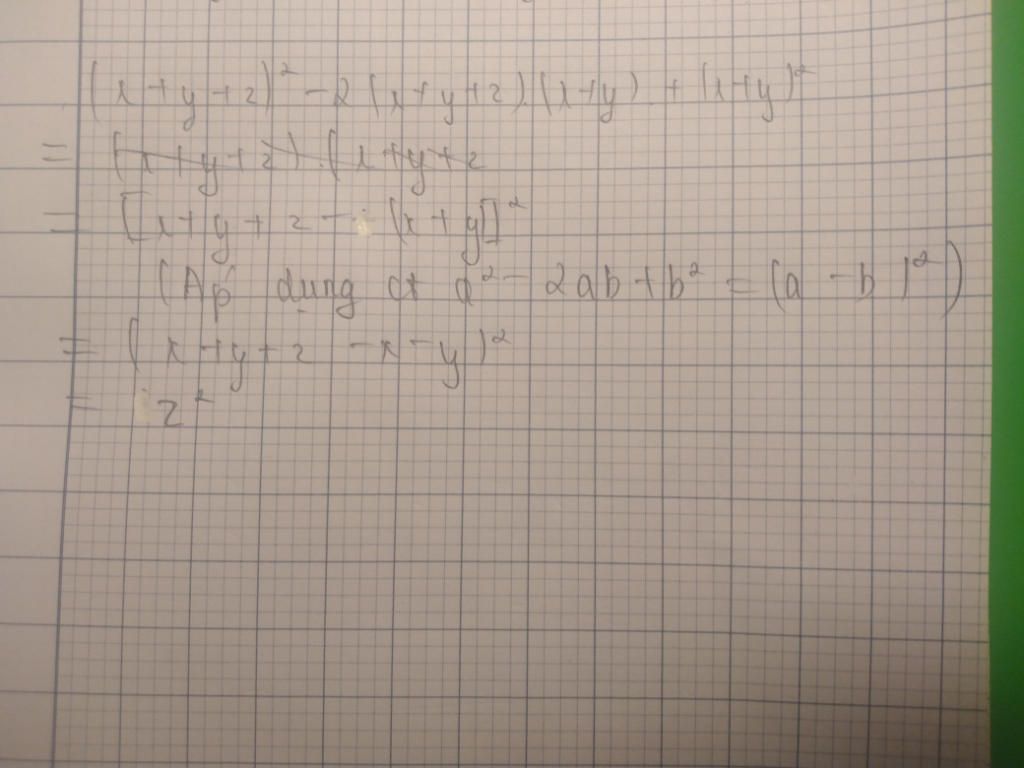 (x+y+z)² - 2(x+y+z).(x+y) + (x+y)²
= (x+y+z).(x+y+z
= [x+y+z - (x+y)]²
(Áp dụng ct a² - 2ab + b² = (a - b)²)
= (x+y+z - x - y)²
= z²